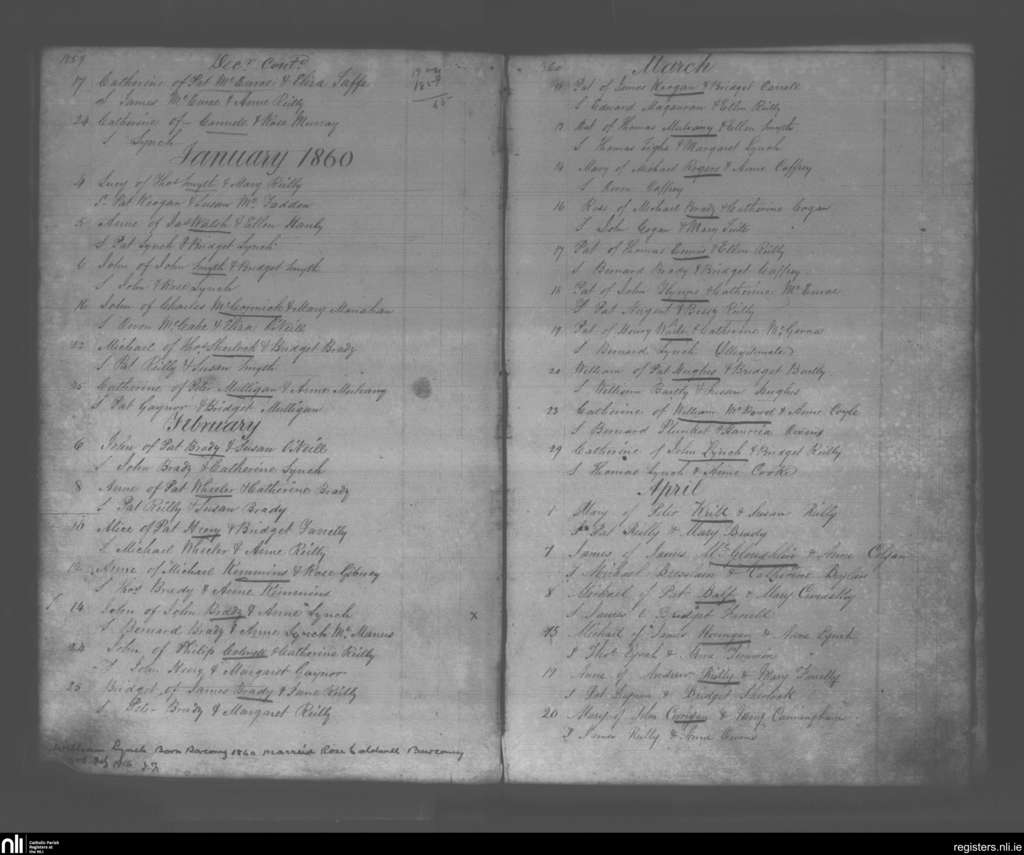 1859
Decr Contd
17 Catherine of Pat McEnroe & Eliza Taffe
S James McEnroe & Anne Reilly
24 Catherine of - Connell & Rose Murray
S Lynch
January 1860
4 Lucy of Thos Smyth & Mary Reilly
S Pat Keogan & Susan McFadden
5 Anne of Jas Walsh & Ellen Hanly
S Pat Lynch & Bridget Lynch
6 John of John Smyth & Bridget Smyth
S John & Rose Lynch
16 John of Charles McCormick & Mary Monahan
S Owen McCabe & Eliza O'Neill
22 Michael of Thos Sherlock & Bridget Brady
S Pat Reilly & Susan Smyth
25 Catherine of Peter Mulligan & Anne Mulvany
S Pat Gaynor & Bridget Mulligan
February
6 John of Pat Brady & Susan O'Neill
S John Brady & Catherine Lynch
8 Anne of Pat Wheeler & Catherine Brady
S Pat Reilly & Susan Brady
10 Alice of Pat Henry & Bridget Farrelly
S Michael Wheeler & Anne Reilly
12 Anne of Michael Kimmins & Rose Gibney
S Thos Brady & Anne Kimmins
14 John of John Brady & Anne Lynch x
S Bernard Brady & Anne Lynch McManus
24 John of Philip Connell & Catherine Reilly
S John Henry & Margaret Gaynor
25 Bridget of James Brady & Jane Reilly
S Peter Brady & Margaret Reilly
William Lynch Born 1860 married Rose Caldwell
60
March
11 Pat of James Keogan & Bridget Carroll
S Edward Magauran & Ellen Reilly
13 Mat of Thomas Mulvany & Ellen Smyth
S Thomas Tighe & Margaret Lynch
14 Mary of Michael Rogers & Anne Caffrey
S Owen Caffrey
16 Rose of Michael Brady & Catherine Cogan
S John Cogan & Mary Tuite
17 Pat of Thomas Ennis & Ellen Reilly
S Bernard Brady & Bridget Caffrey
18 Pat of John Flynn & Catherine McEnroe
S Pat Nugent & Bessy Reilly
19 Pat of Henry Wade & Catherine McGovern
S Bernard Lynch (Illegitimate)
20 William of Pat Hughes & Bridget Bailly
S William Bailly & Susan Hughes
23 Catherine of William McDavid & Anne Coyle
S Bernard Plunket & Hanoria Owens
29 Catherine of John Lynch & Bridget Reilly
S Thomas Lynch & Anne Cooke
April
1 Mary of Peter & Susan Reilly
S Pat Reilly & Mary Brady
7 James of James McLoughlin & Anne
S Michael & Catherine Boylan
8 Michael of Pat Balfe & Mary
S James & Bridget Farrell
15 Michael of James & Anne Lynch
S Thos Lynch & Anne
19 Anne of Andrew Reilly & Mary Farrelly
S Pat & Bridget Sherlock
20 Mary of John Corrigan & Mary Cunningham
S James Reilly & Anne
nli
Catholic Parish
Registers at
the NLI
registers.nli.ie